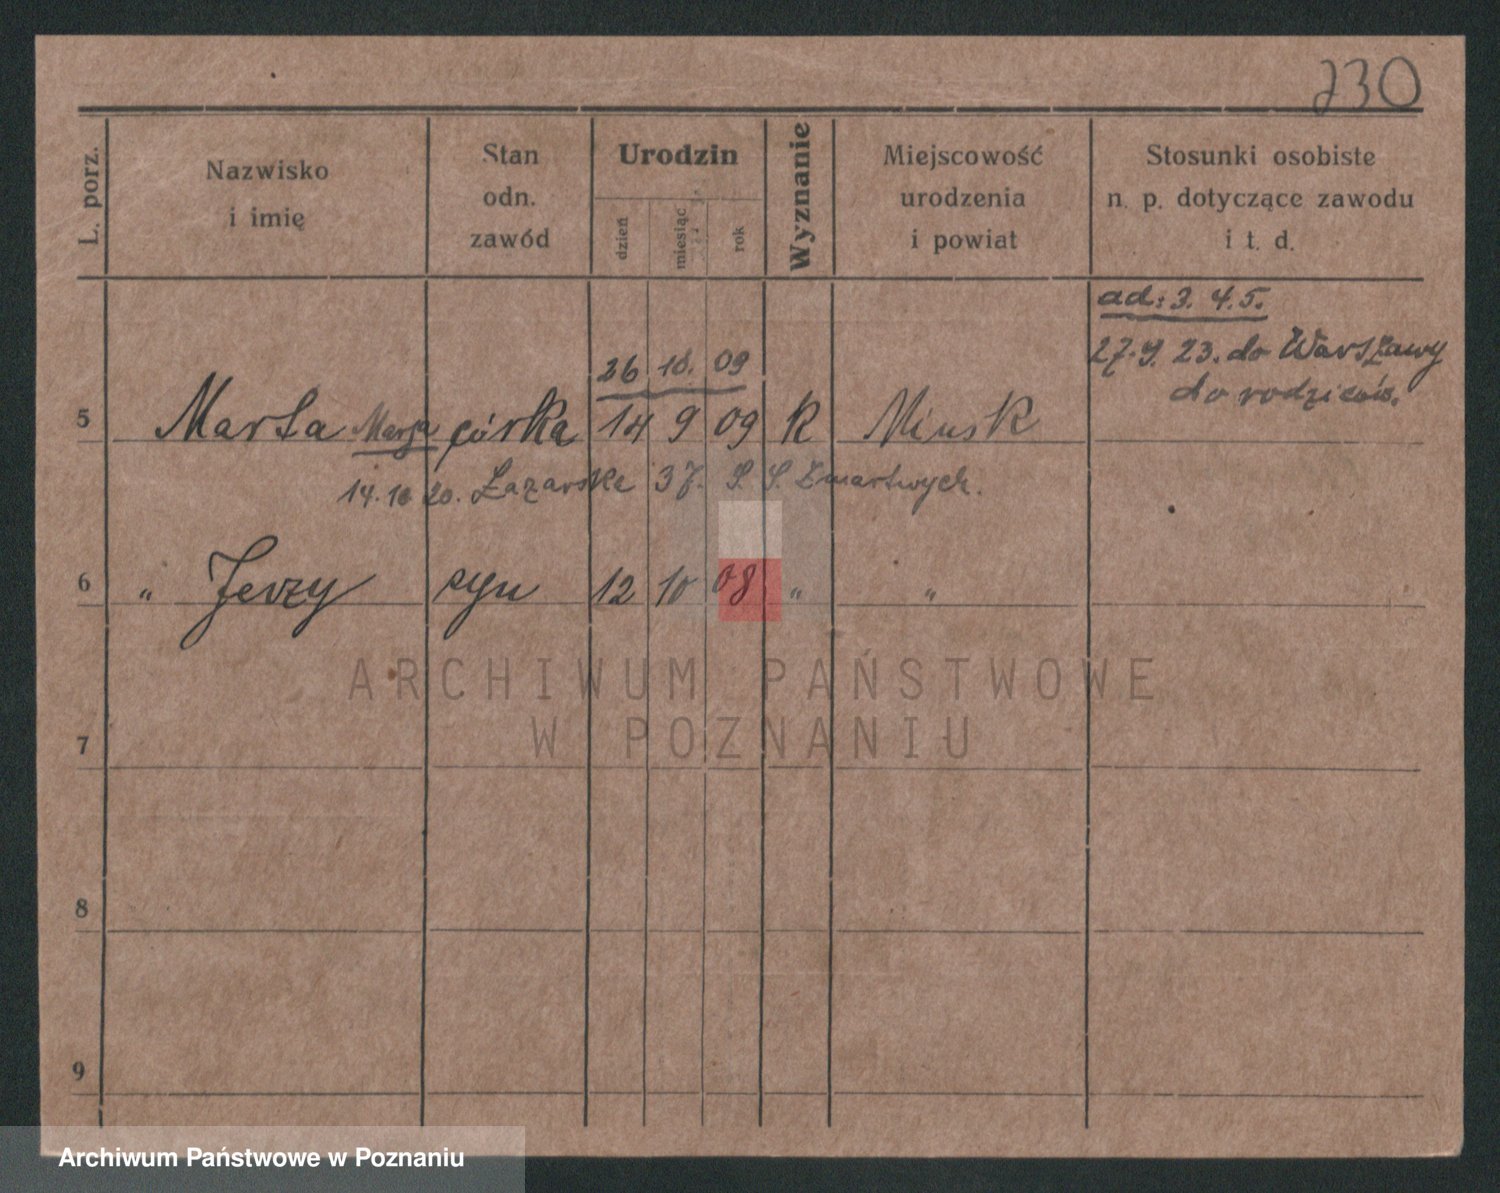 230
L. porz.
Nazwisko
i imię
Stan
odn.
zawód
Urodzin
dzień
miesiąc
rok
Wyznanie
Miejscowość
urodzenia
i powiat
Stosunki osobiste
n. p. dotyczące zawodu
i t. d.
ad: 3. 4. 5.
27.9. 23. do Warszawy
do rodziców.
26 10. 09
5 Marta Marja córka 14 9 09 k Minsk
14.10 20. Łazarska 37. S. S. Zmartwych.
6 " Jerzy syn 12 10 08 " "
ARCHIWUM PAŃSTWOWE
W POZNANIU
7
8
9
Archiwum Państwowe w Poznaniu